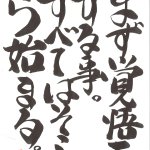 まず覚悟
する事。
すべてはそ
ら始まる。